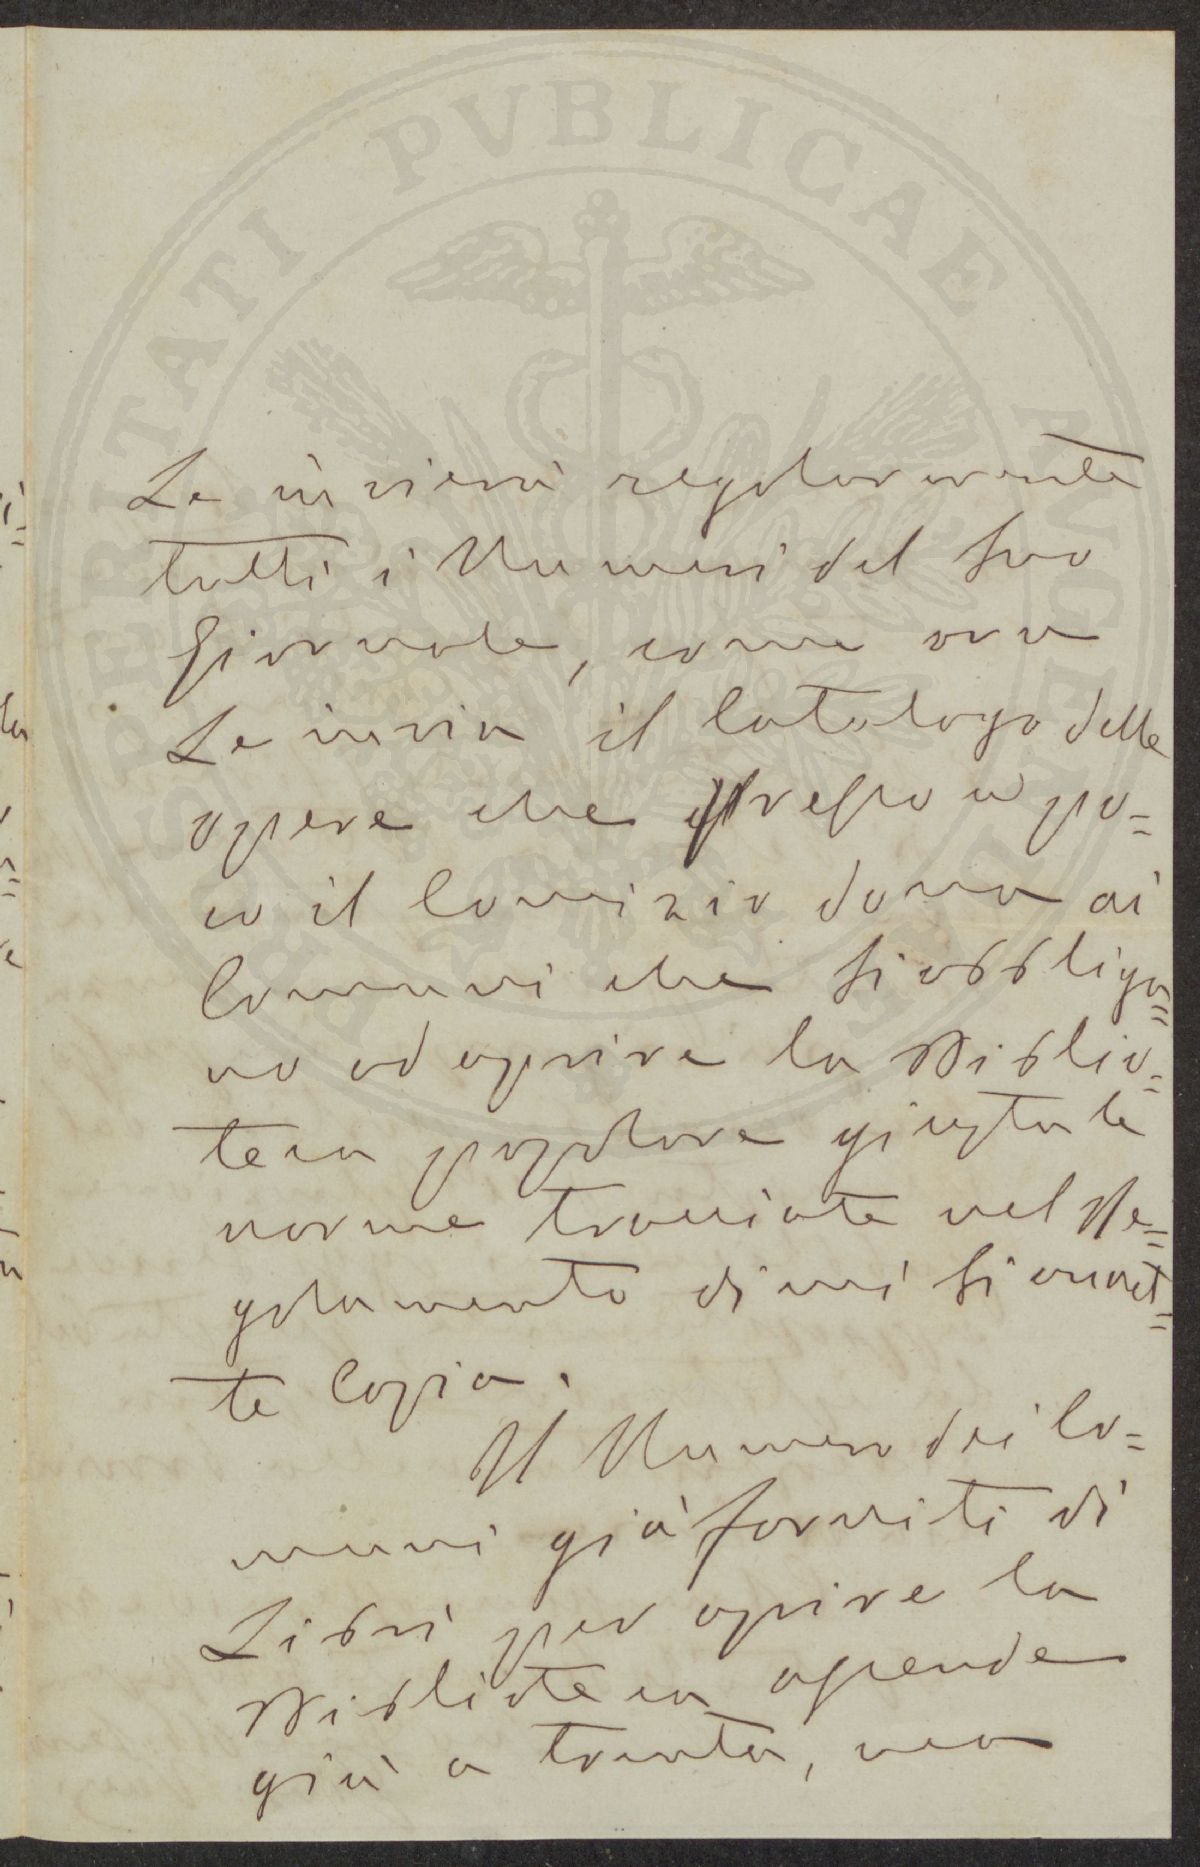 PROSPERITATI PVBLICAE AVGENDAE
Le invierà regolarmente
tutti i Numeri del suo
Giornale, come ora
Le invia il Catalogo delle
opere che presso a po=
co il Comizio dona ai
Comuni che si obbliga=
no ad aprire la Biblio=
teca popolare giusta le
norme tracciate nel Re=
golamento di cui si rimet=
te Copia.
Il Numero dei Co=
muni già forniti di
Libri per aprire la
Biblioteca ascende
già a trenta, ma